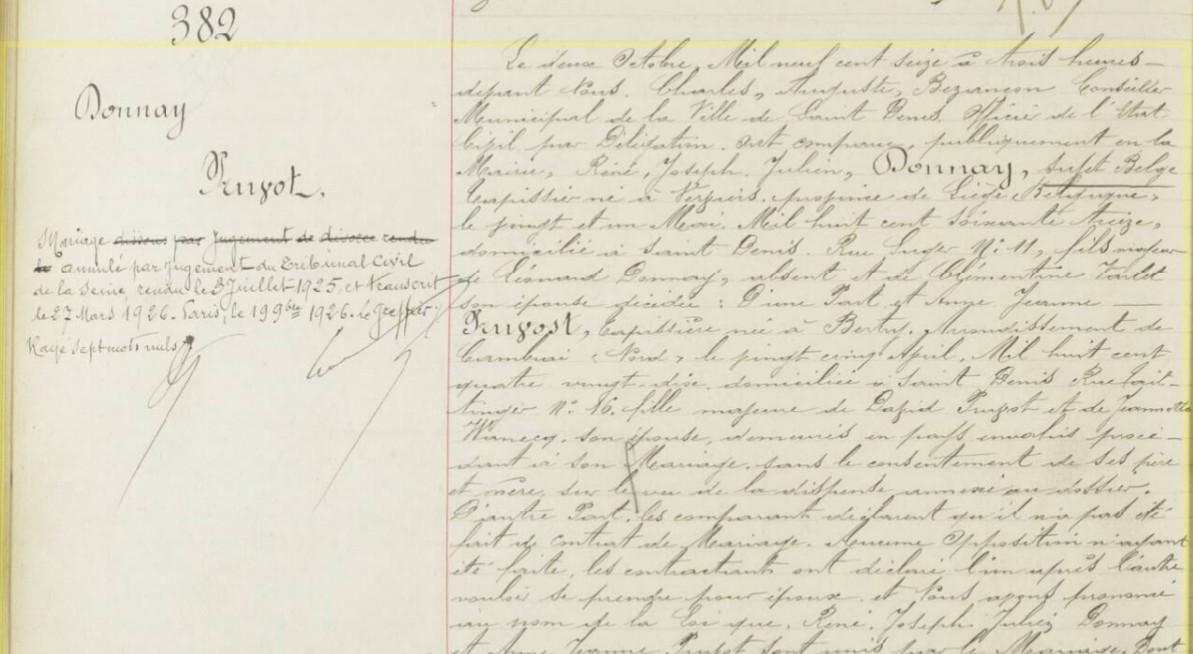 382
Donnay
Pruvot.
Mariage dissous par Jugement de divorce rendu
le annulé par Jugement du Tribunal Civil
de la Seine, rendu le 3 Juillet 1925, et transcrit
le 27 Mars 1926. Paris, le 19 9bre 1926. Le Greffier.
Rayé sept mots nuls
Le deux Octobre, Mil neuf cent seize à trois heures
devant Nous. Charles, Auguste, Bezançon Conseiller
Municipal de la Ville de Saint Denis. Officier de l'Etat
Civil par Délégation. ont comparu, publiquement en la
Mairie, René, Joseph. Julien, Donnay, sujet Belge
Tapissier né à Verviers. province de Liège Belgique,
le vingt et un Mai. Mil huit cent soixante treize,
domicilié à Saint Denis. Rue Suger N: 11, fils majeur
de Léonard Donnay, absent et de Clémentine
son épouse décédée : D'une Part, et Anne Jeanne
Pruvost, Tapissière née à Bertry. Arrondissement de
Cambrai (Nord) le vingt cinq Avril, Mil huit cent
quatre vingt-dix. domiciliée à Saint Denis Rue
N: 16. fille majeure de David Pruvot et de
son épouse, demeurés en pays envahis procé-
dant à son Mariage. sans le consentement de ses père
et mère, sur le vu de la dispense annexée au dossier.
D'autre Part. les comparant déclarent qu'il n'a pas été
fait de contrat de Mariage. Aucune opposition n'ayant
été faite, les contractants ont déclaré l'un après l'autre
vouloir se prendre pour époux. et Nous avons prononcé
au nom de la Loi que, René. Joseph Julien Donnay
et Anne Jeanne Pruvot sont unis par le Mariage, Dont